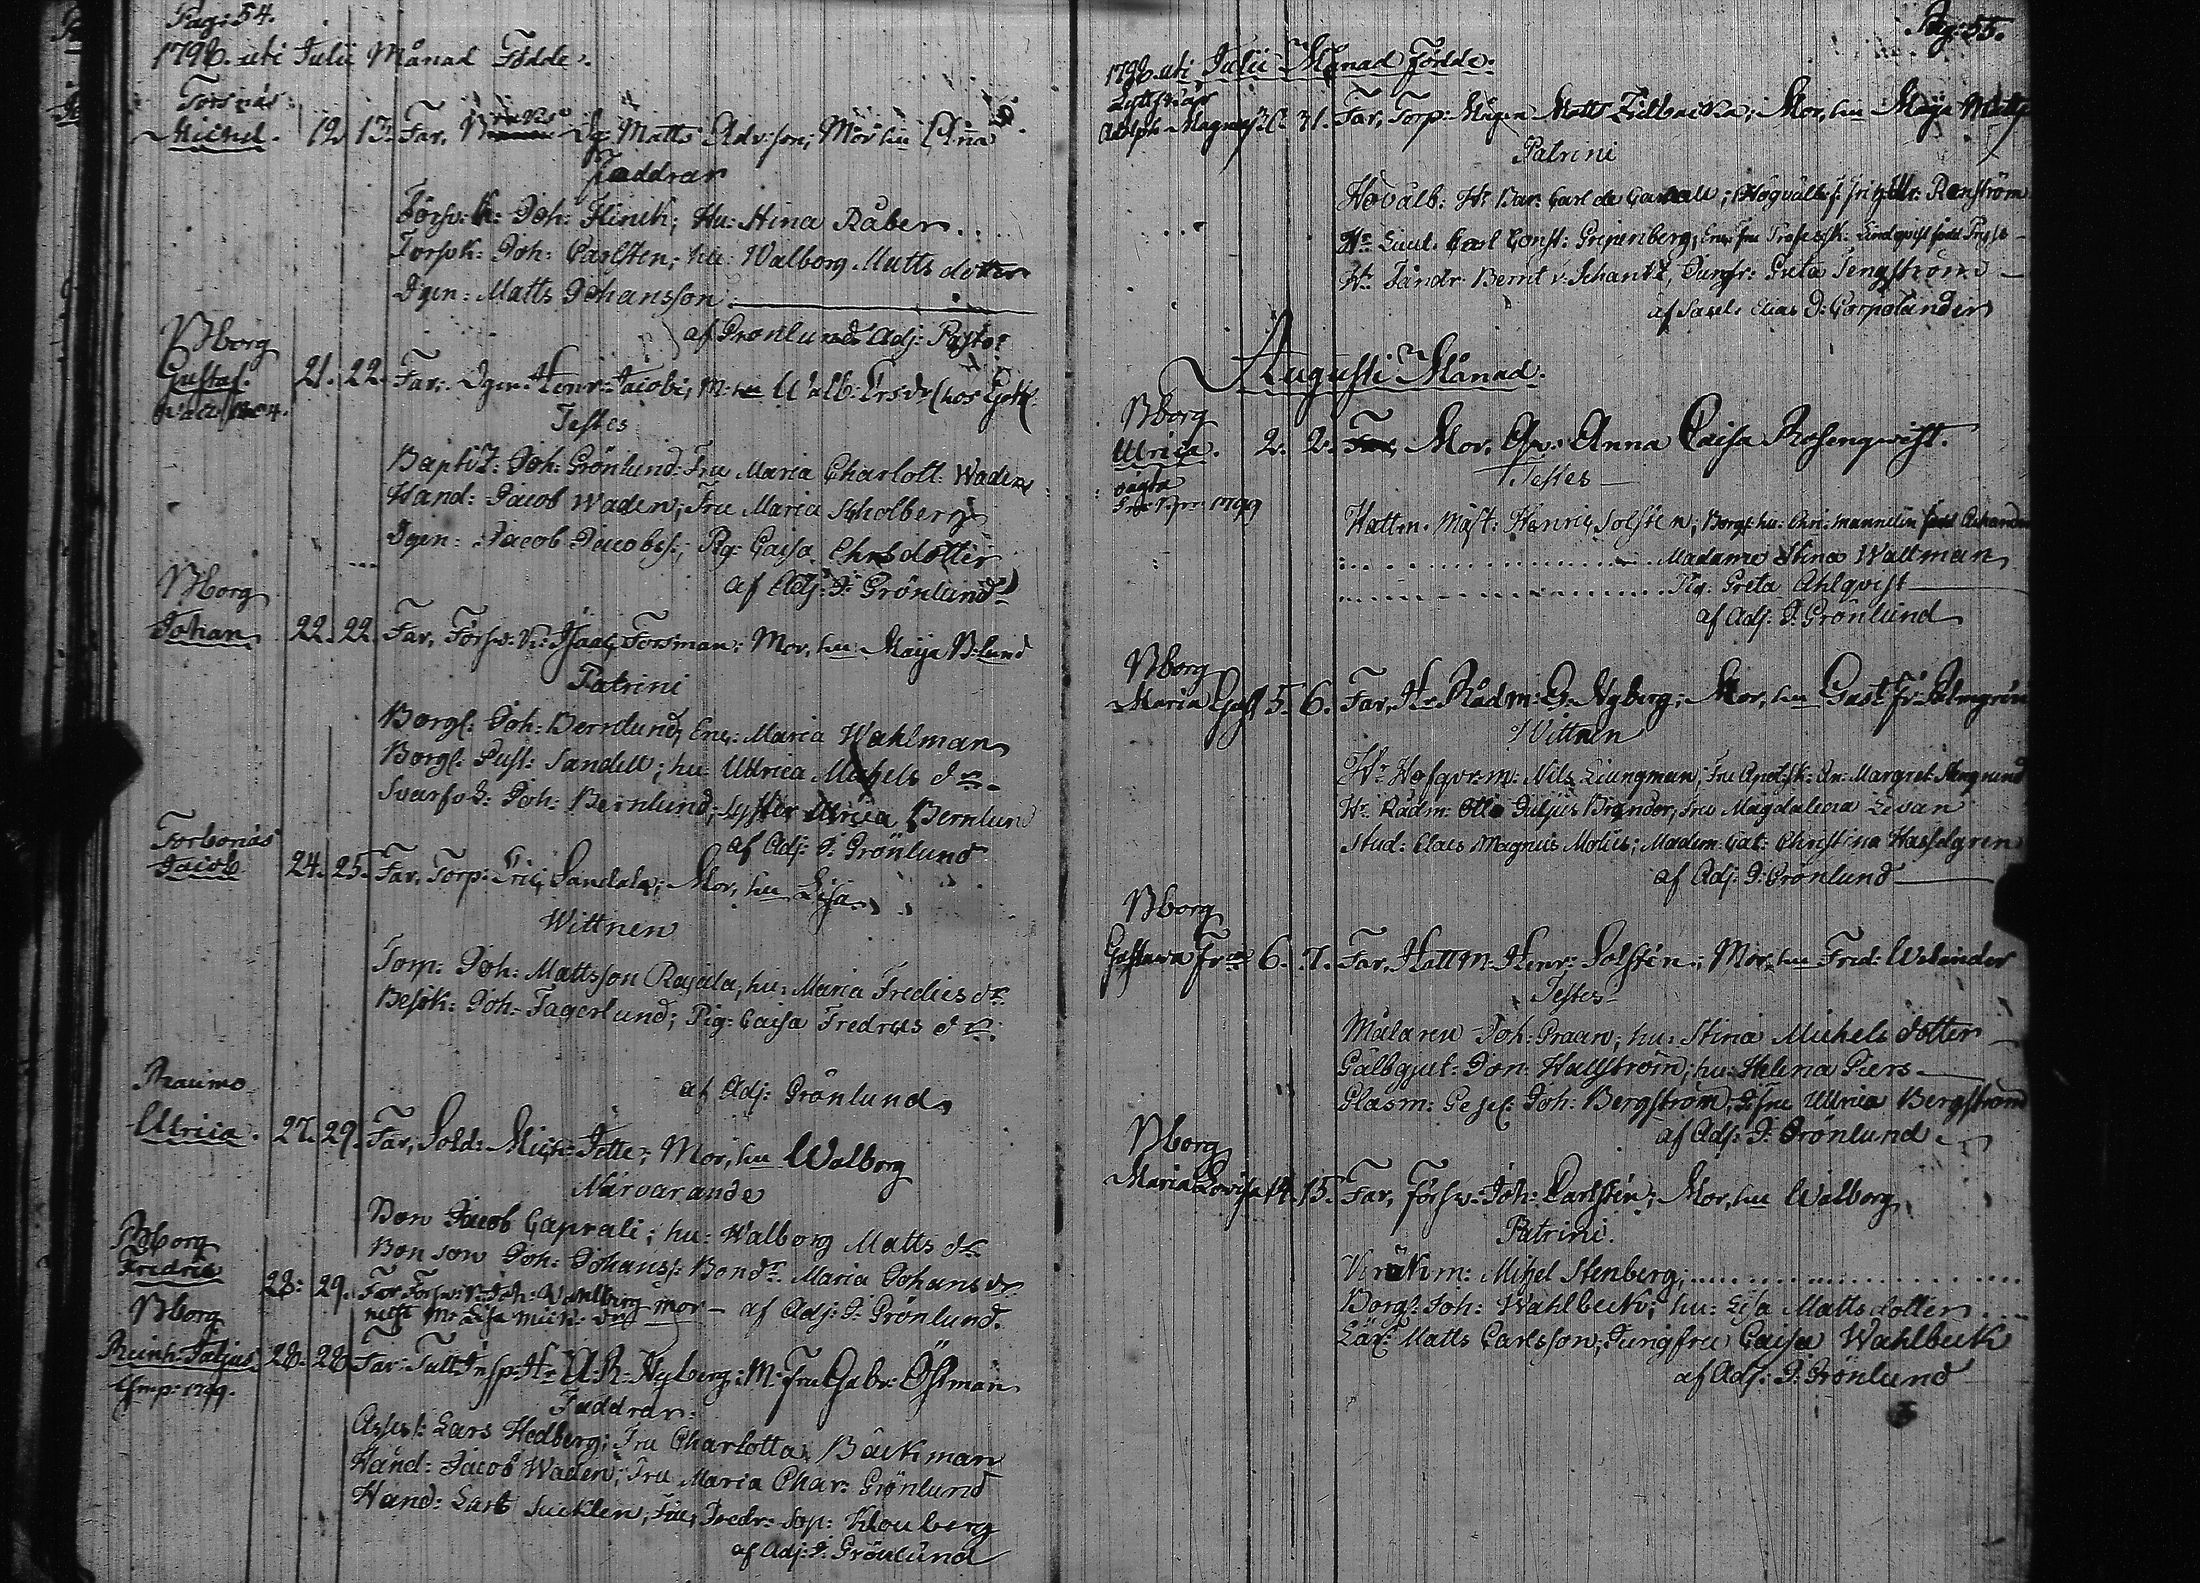 Pag: 54.
1798. uti Julii Månad Födde.
Torsnäs
Michel. 12 13. Far, Dr. Matts Adv:son; Mor hu Aña
Faddrar
Försv: K: Joh: Flinck; Hu: Stina Råber
Torsvk: Joh: Carlsten; hu: Walborg Matts dotter
Dgen: Matts Johansson
af Grönlund Adj: Pastor
Bborg
Gustaf. 21. 22. Far, Dgn: Henr: Jacobs; M: hu Walb: Ersdr (hos
1804.
Testes
Baptiz: Joh: Grönlund: Fru Maria Charlott: Waden
Hand: Jacob Waden; Fru Maria Scholberg
Dgen: Jacob Jacobss; Pig: Caisa Ehrsdotter
af Adj: J: Grönlund
Bborg
Johan 22. 22. Far, Försv: K: Isaac Forsman; Mor, hu Maija B:lund
Patrini
Borgs: Joh: Bernlund; Enk: Maria Wahlman
Borgs: Gust: Sandell; hu: Ullrica Michels dr
Svarfv L: Joh: Bernlund; Syster Ulrica Bernlund
af Adj: J: Grönlund
Torbonäs
Jacob 24. 25. Far, Torp: Eric Sandala; Mor, hu Lisa
Wittnen
Torp: Joh: Mattsson Rajala, hu: Maria Fredics dr
Besök: Joh: Fagerlund; Pig: Caisa Fredrics dr
af Adj: Grönlund
Raumo
Ulrica. 27. 29. Far, Sold: Mich: Fette; Mor, hu Walborg
Närvarande
Bon Jacob Caprali; hu: Walborg Matts dr
Bonson Joh: Johanss: Bondr: Maria Johans dr
Bborg
Fredric 28: 29. Far Försv: K: Joh: Wahlberg mor – af Adj: J: Grönlund.
Lisa Mick: Dr
Bborg
Reinh: Julius. 28. 28. Far: Tull Insp: Hr A: R: Nyberg; M: Fru Gabr: Östman
1799.
Faddrar:
Assess: Lars Hedberg; Fru Charlotta Bäckman
Hand: Jacob Waden; Fru Maria Char: Grönlund
Hand: Lars Sucklen; Fru Fredr: Sop: Klouberg
af Adj: J: Grönlund
Pag: 55.
1798. uti Julii Månad födde.
Adolph Magnus 30. 31. Far, Torp: Mågen Matts Zillbacka; Mor, hu Maija Matts
Patrini
Högvälb: Hr Bar: Carl de Carnall; Högvälb: Renström
Hr Lieut. Carl Const: Gripenberg; Lindqvist född
Hr Fändr. Bernt v: Schantz, Jungfr: Greta Tengström
af Elias J: Corpolander
Augusti Månad.
Bborg
Ulrica. 2. 2. Far, Mor, Qv: Anna Caisa Rosenqvist.
oägta
1799
Testes
Hattm: Mäst: Henric Solsten; Borgs: hu: Chri: Mannelin född
Madame Stina Waltman
Pig. Greta Ahlqvist
af Adj: J: Grönlund
Bborg
Maria Gust 5. 6. Far, Hr Rådm: G: Nyberg; Mor, hu Gust fr Palmgren
Wittnen
Hr Hofqvrm: Nils Liungman; Fru An: Margret
Hr Rådm: Otto Julius Brander, Fru Magdalena Levan
Stud: Claes Magnus Molis; Madem: Cat: Christina Hasselgren
af Adj: J: Grönlund
Bborg
Gustava Frca 6. 7. Far, Hattm: Henr: Solsten; Mor, hu Fred: Welinder
Testes
Målaren Joh: Praan; hu: Stina Michels dotter
Gälbgjut: Jon: Hallström; hu: Helena Piers
Glasm: Gesel: Joh: Bergström; Ullrica Bergström
af Adj: J: Grönlund
Bborg
Maria Lovisa 14. 15. Far, försv: Joh: Carlsten; Mor, hu Walborg
Patrini.
Mihel Stenberg;
Borgs: Joh: Wahlbeck; hu: Lisa Matts dotter.
Lär: Matts Carlsson; Jungfru Caisa Wahlbeck
af Adj: J: Grönlund